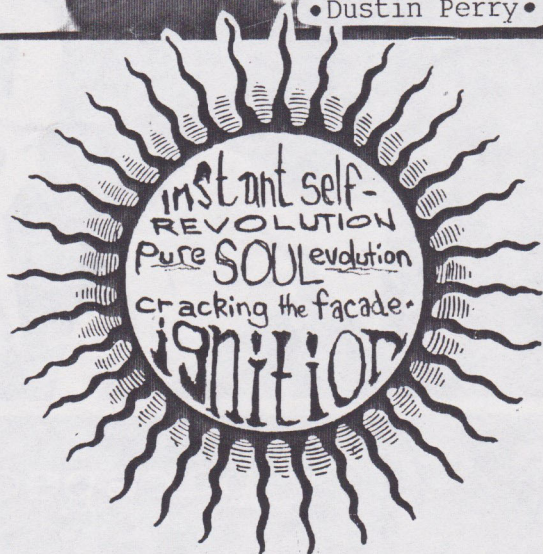 •Dustin Perry•
instant self-
REVOLUTION
Pure SOUL evolution
cracking the facade.
ignition